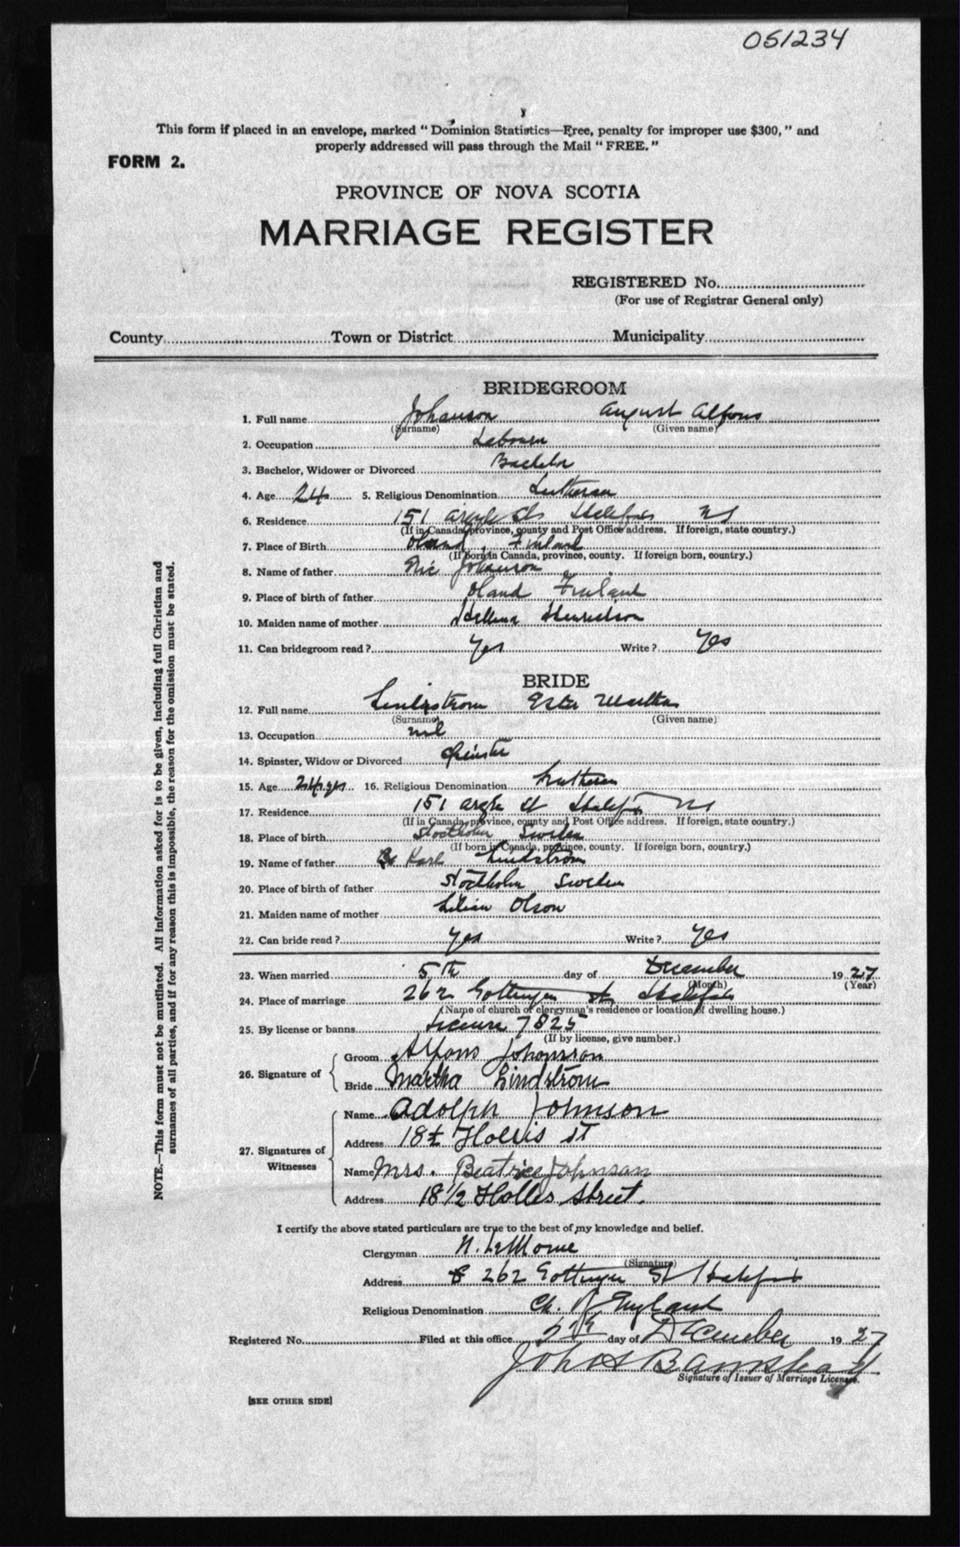 051234
This form if placed in an envelope, marked "Dominion Statistics—Free, penalty for improper use $300," and
properly addressed will pass through the Mail "FREE."
FORM 2.
PROVINCE OF NOVA SCOTIA
MARRIAGE REGISTER
REGISTERED No.
(For use of Registrar General only)
County Town or District Municipality
BRIDEGROOM
1. Full name Johanson August Alfons
(Surname) (Given name)
2. Occupation Labourer
3. Bachelor, Widower or Divorced Bachelor
4. Age 24 5. Religious Denomination Lutheran
6. Residence 151 Argyle St Halifax NS
(If in Canada, province, county and Post Office address. If foreign, state country.)
7. Place of Birth Oland Finland
(If born in Canada, province, county. If foreign born, country.)
8. Name of father Eric Johanson
9. Place of birth of father Oland Finland
10. Maiden name of mother Henrickson
11. Can bridegroom read? Yes Write? Yes
BRIDE
12. Full name Lindstrom Ester Martha
(Surname) (Given name)
13. Occupation nil
14. Spinster, Widow or Divorced Spinster
15. Age 24 yrs 16. Religious Denomination Lutheran
17. Residence 151 Argyle St Halifax NS
(If in Canada, province, county and Post Office address. If foreign, state country.)
18. Place of birth Stockholm Sweden
(If born in Canada, province, county. If foreign born, country.)
19. Name of father Karl Lindstrom
20. Place of birth of father Stockholm Sweden
21. Maiden name of mother Lilian Olson
22. Can bride read? Yes Write? Yes
23. When married 5th day of December 1927
(Month) (Year)
24. Place of marriage 262 Gottingen St Halifax
(Name of church or clergyman's residence or location of dwelling house.)
25. By license or banns License 7825
(If by license, give number.)
26. Signature of
Groom Alfons Johansson
Bride Martha Lindström
27. Signatures of Witnesses
Name Adolph Johnson
Address 18½ Hollis St
Name Mrs. Beatrice Johnson
Address 18½ Hollis Street.
I certify the above stated particulars are true to the best of my knowledge and belief.
Clergyman N. LeMoine
(Signature)
Address 262 Gottingen St Halifax
Religious Denomination Ch. of England
Registered No. Filed at this office day of December 1927
Signature of Issuer of Marriage Licenses.
[SEE OTHER SIDE]
NOTE.—This form must not be mutilated. All information asked for is to be given, including full Christian and
surnames of all parties, and if for any reason this is impossible, the reason for the omission must be stated.